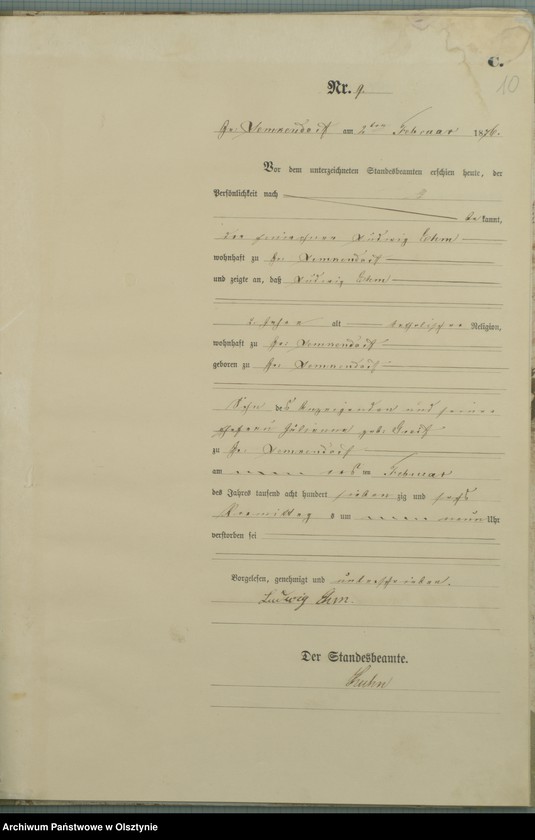 C.
10
Nr. 9.
am Februar 1876.
Vor dem unterzeichneten Standesbeamten erschien heute, der
Persönlichkeit nach
be kannt,
der Ludwig Ehm
wohnhaft zu Gr:
und zeigte an, daß Ludwig Ehm
2 Jahre alt katholischer Religion,
wohnhaft zu Gr:
geboren zu Gr:
Sohn des Anzeigenden und seiner
Ehefrau Julianna geb:
zu Gr:
am ten Februar
des Jahres tausend acht hundert sieben zig und sechs
Vormittag s um neun Uhr
verstorben sei
Vorgelesen, genehmigt und unterschrieben.
Ludwig Ehm.
Der Standesbeamte.
Archiwum Państwowe w Olsztynie